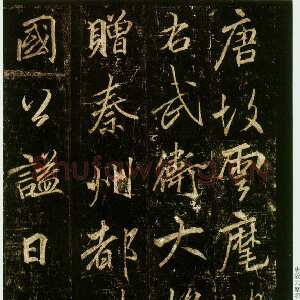 唐故雲麾
右武衛大
贈秦州都
國公謚曰